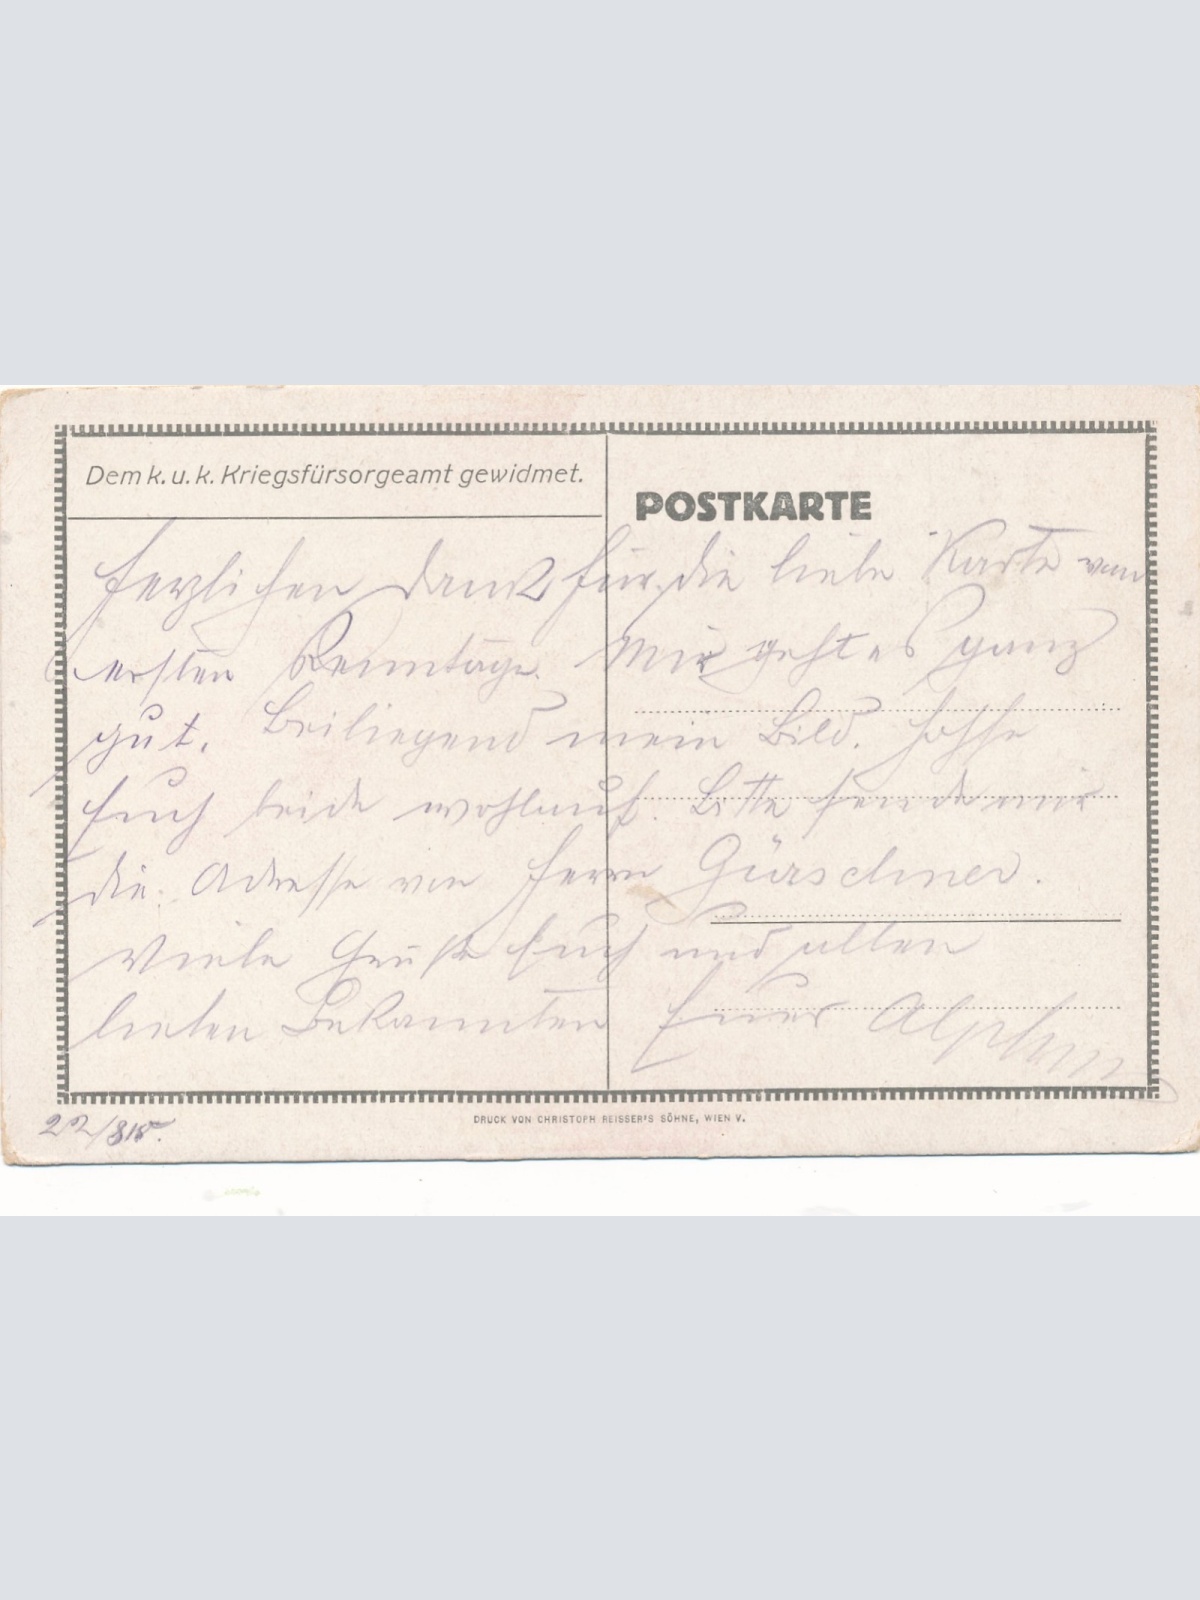 Dem k. u. k. Kriegsfürsorgeamt gewidmet.
POSTKARTE
Herzlichen Dank für die liebe Karte vom
ersten Renntage. Mir geht es ganz
gut. Beiliegend mein Bild. Hoffe
Euch beide wohlauf. Bitte sende mir
die Adresse von Herrn Gürschner.
Viele Grüße Euch und allen
lieben Bekannten Euer Alphons
22/8 15.
DRUCK VON CHRISTOPH REISSER'S SÖHNE, WIEN V.